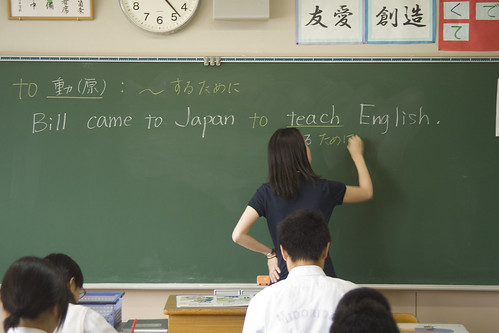 友愛 創造
くて
て
to 動(原): ～するために
Bill came to Japan to teach English.
るために